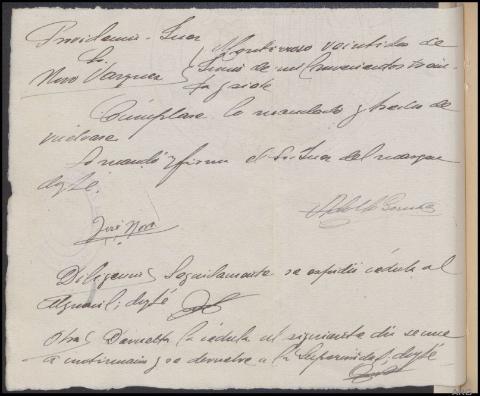 Providencia - Juez
Sr.
Novo Vazquez
Monterroso veintidos de
Junio de mil novecientos trein-
ta y siete
Cúmplase lo mandado y hecho de
vuelvase
Lo mandó y firma el Sr. Juez del margen
doy fe.
José Novo
Diligencia Seguidamente se expidió cédula al
Alguacil; doy fe
Otra Devuelta la cédula al siguiente dia se une
a continuación y se devuelve a la Superioridad; doy fe.